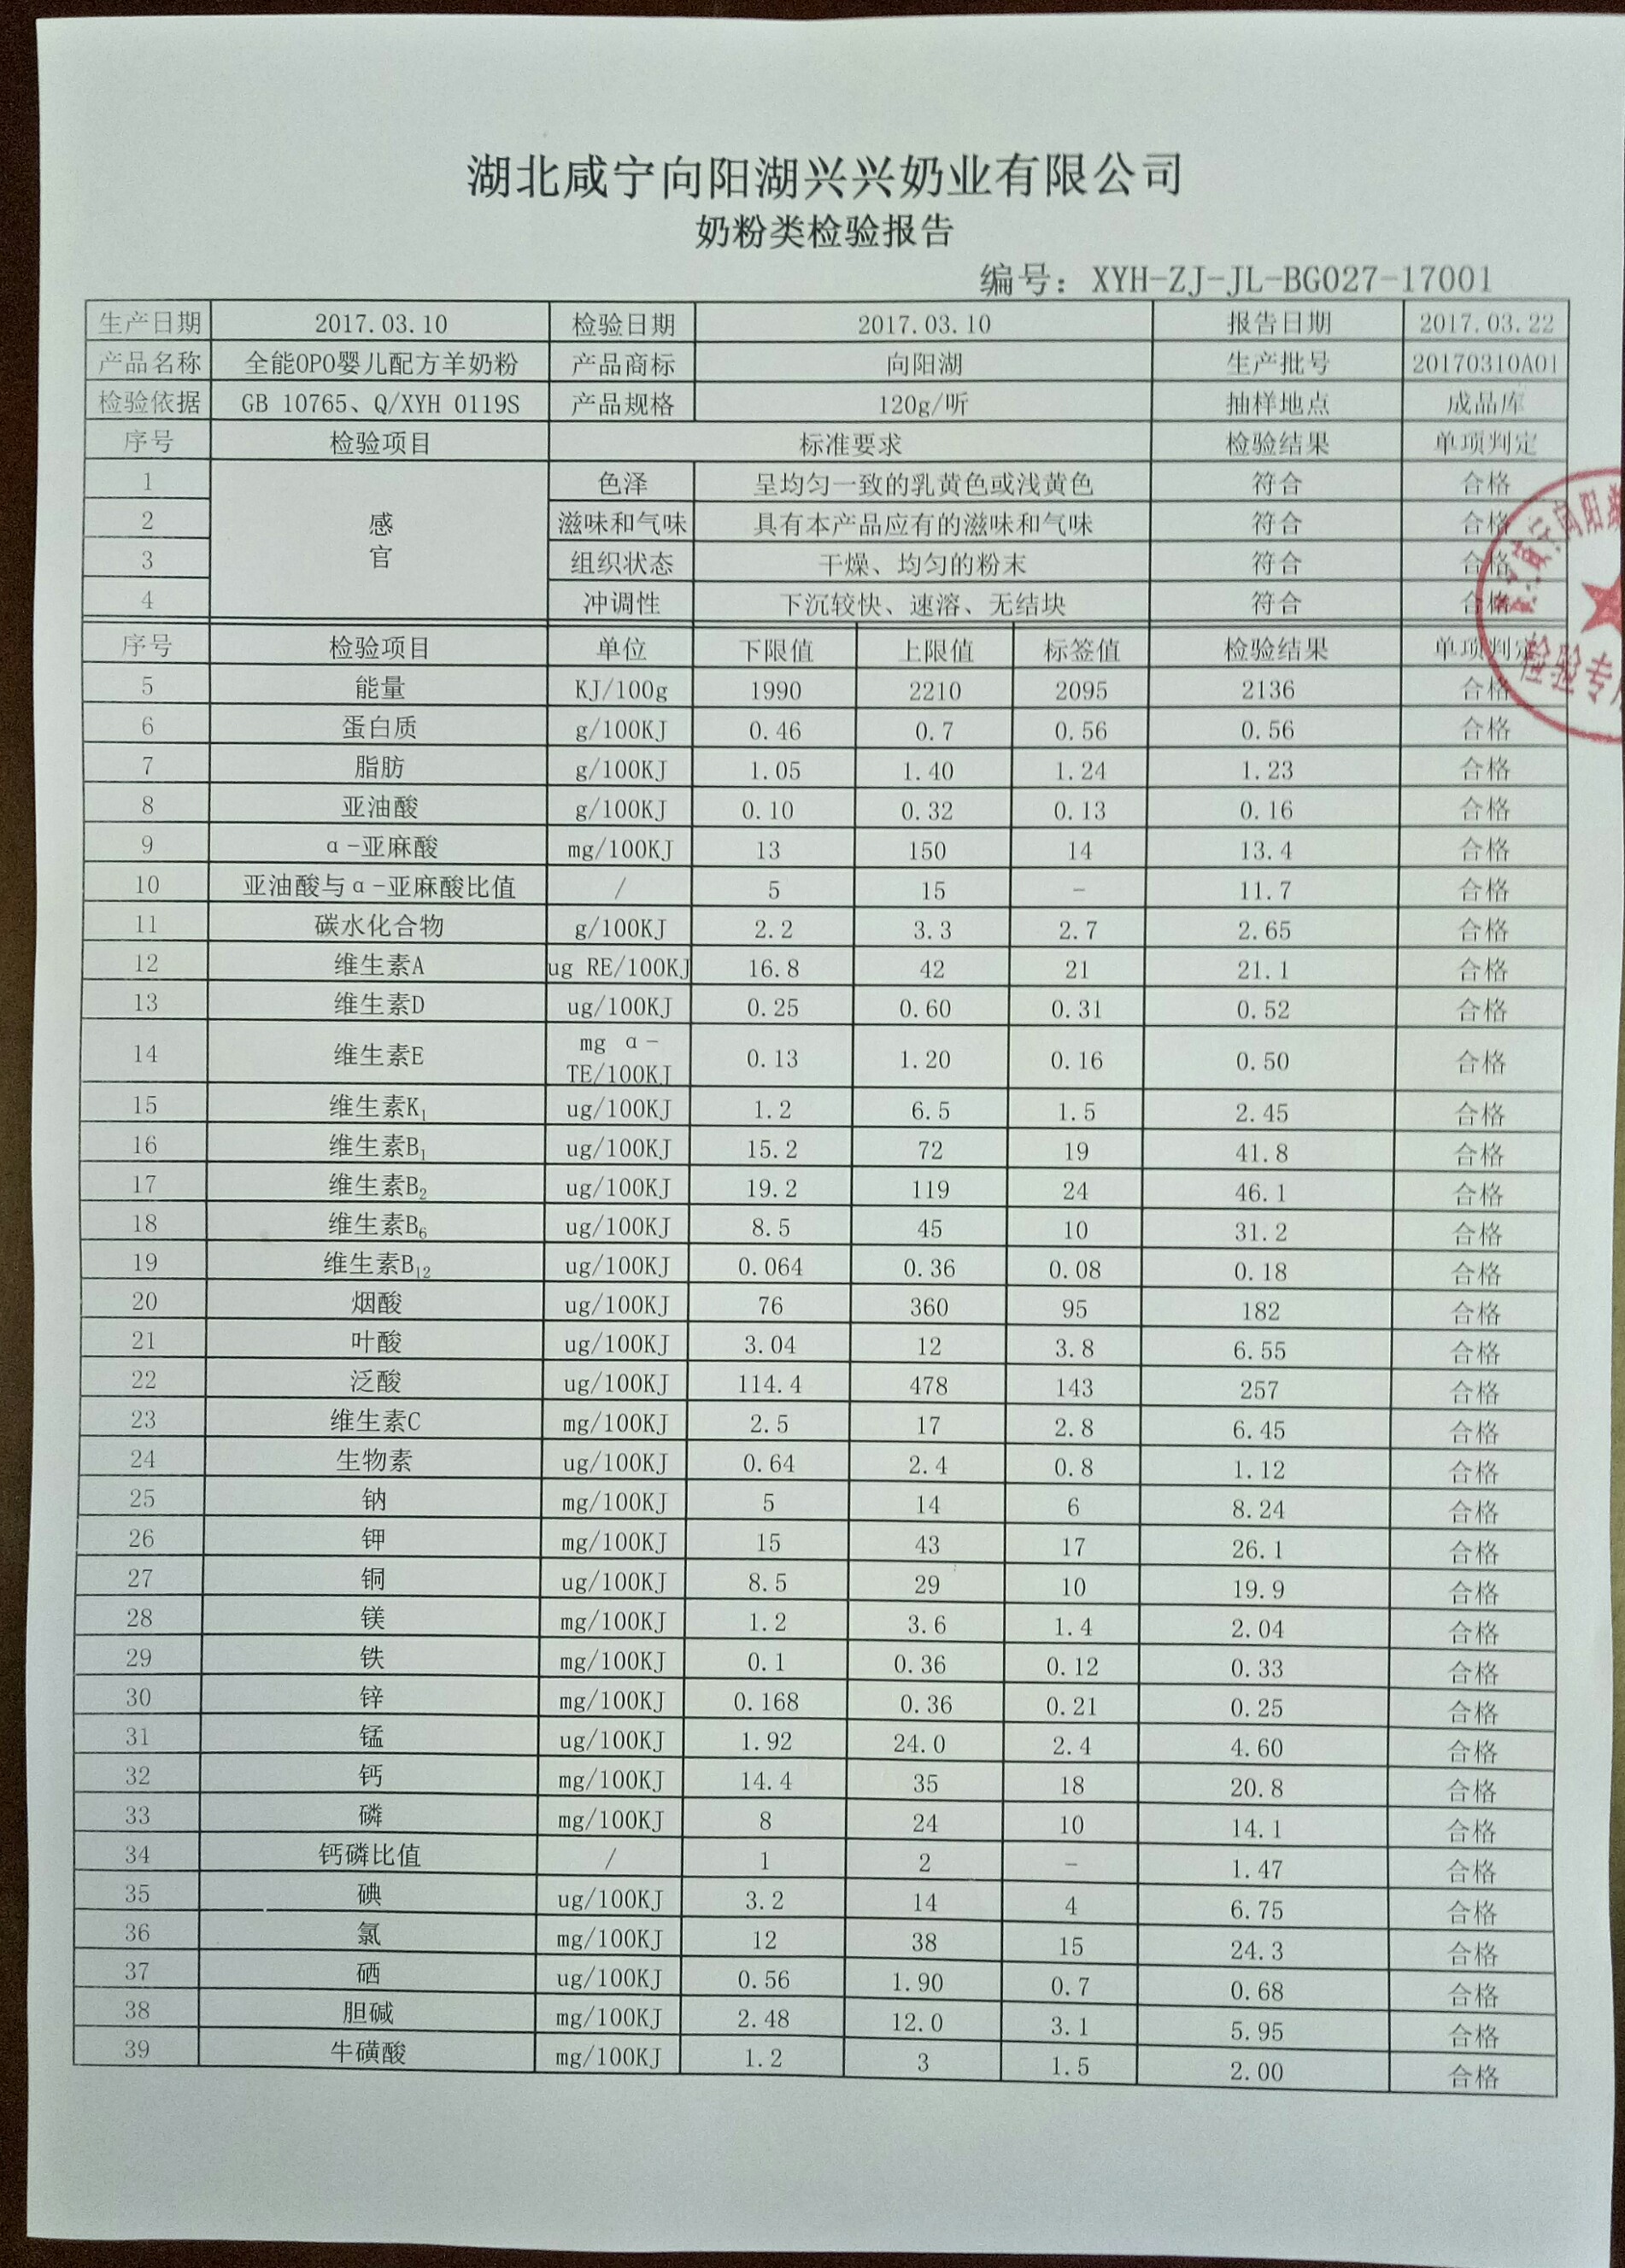 湖北咸宁向阳湖兴兴奶业有限公司
奶粉类检验报告
编号：XYH-ZJ-JL-BG027-17001
生产日期 2017.03.10 检验日期 2017.03.10 报告日期 2017.03.22
产品名称 全能OPO婴儿配方羊奶粉 产品商标 向阳湖 生产批号 20170310A01
检验依据 GB 10765、Q/XYH 0119S 产品规格 120g/听 抽样地点 成品库
序号 检验项目 标准要求 检验结果 单项判定
1 感官 色泽 呈均匀一致的乳黄色或浅黄色 符合 合格
2 滋味和气味 具有本产品应有的滋味和气味 符合 合格
3 组织状态 干燥、均匀的粉末 符合 合格
4 冲调性 下沉较快、速溶、无结块 符合 合格
序号 检验项目 单位 下限值 上限值 标签值 检验结果 单项判定
5 能量 KJ/100g 1990 2210 2095 2136 合格
6 蛋白质 g/100KJ 0.46 0.7 0.56 0.56 合格
7 脂肪 g/100KJ 1.05 1.40 1.24 1.23 合格
8 亚油酸 g/100KJ 0.10 0.32 0.13 0.16 合格
9 α-亚麻酸 mg/100KJ 13 150 14 13.4 合格
10 亚油酸与α-亚麻酸比值 / 5 15 - 11.7 合格
11 碳水化合物 g/100KJ 2.2 3.3 2.7 2.65 合格
12 维生素A ug RE/100KJ 16.8 42 21 21.1 合格
13 维生素D ug/100KJ 0.25 0.60 0.31 0.52 合格
14 维生素E mg α-TE/100KJ 0.13 1.20 0.16 0.50 合格
15 维生素K₁ ug/100KJ 1.2 6.5 1.5 2.45 合格
16 维生素B₁ ug/100KJ 15.2 72 19 41.8 合格
17 维生素B₂ ug/100KJ 19.2 119 24 46.1 合格
18 维生素B₆ ug/100KJ 8.5 45 10 31.2 合格
19 维生素B₁₂ ug/100KJ 0.064 0.36 0.08 0.18 合格
20 烟酸 ug/100KJ 76 360 95 182 合格
21 叶酸 ug/100KJ 3.04 12 3.8 6.55 合格
22 泛酸 ug/100KJ 114.4 478 143 257 合格
23 维生素C mg/100KJ 2.5 17 2.8 6.45 合格
24 生物素 ug/100KJ 0.64 2.4 0.8 1.12 合格
25 钠 mg/100KJ 5 14 6 8.24 合格
26 钾 mg/100KJ 15 43 17 26.1 合格
27 铜 ug/100KJ 8.5 29 10 19.9 合格
28 镁 mg/100KJ 1.2 3.6 1.4 2.04 合格
29 铁 mg/100KJ 0.1 0.36 0.12 0.33 合格
30 锌 mg/100KJ 0.168 0.36 0.21 0.25 合格
31 锰 ug/100KJ 1.92 24.0 2.4 4.60 合格
32 钙 mg/100KJ 14.4 35 18 20.8 合格
33 磷 mg/100KJ 8 24 10 14.1 合格
34 钙磷比值 / 1 2 - 1.47 合格
35 碘 ug/100KJ 3.2 14 4 6.75 合格
36 氯 mg/100KJ 12 38 15 24.3 合格
37 硒 ug/100KJ 0.56 1.90 0.7 0.68 合格
38 胆碱 mg/100KJ 2.48 12.0 3.1 5.95 合格
39 牛磺酸 mg/100KJ 1.2 3 1.5 2.00 合格
向阳
检验专